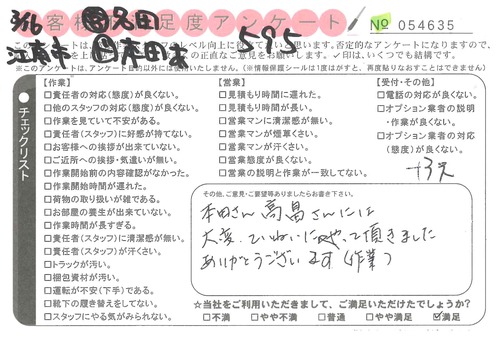 お客様満足度アンケート
3/16
5595
№ 054635
✓印は、いくつでも結構です。
※このアンケートは、アンケート目的以外には使用いたしません。(※情報保護シールは1度はがすと、再度貼りなおすことはできません)
チェックリスト
【作業】
□責任者の対応(態度)が良くない。
□他のスタッフの対応(態度)が良くない。
□作業を見ていて不安がある。
□責任者(スタッフ)に好感が持てない。
□お客様への挨拶が出来ていない。
□ご近所への挨拶・気遣いが無い。
□作業開始前の内容確認がなかった。
□作業開始時間が遅れた。
□荷物の取り扱いが雑である。
□お部屋の養生が出来ていない。
□作業時間が長すぎる。
□責任者(スタッフ)に清潔感が無い。
□責任者(スタッフ)が汗くさい。
□トラックが汚い。
□梱包資材が汚い。
□運転が不安(下手)である。
□靴下の履き替えをしてない。
□スタッフにやる気がみられない。
【営業】
□見積もり時間に遅れた。
□見積もり時間が長い。
□営業マンに清潔感が無い。
□営業マンが煙草くさい。
□営業マンが汗くさい。
□営業態度が良くない。
□営業の説明と作業が一致してない。
【受付・その他】
□電話の対応が良くない。
□オプション業者の説明
・作業が良くない。
□オプション業者の対応
(態度)が良くない。
その他、ご意見・ご要望等ありましたらお書き下さい。
本田さん 高畠さんには
大変、ていねいにやって頂きました
ありがとうございます(作業)
☆当社をご利用いただきまして、ご満足いただけたでしょうか?
□不満 □やや不満 □普通 □やや満足 ☑満足